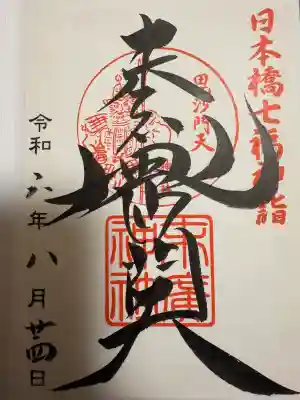 日本橋七福神詣
毘沙門天
末廣
神社
令和六年八月廿四日